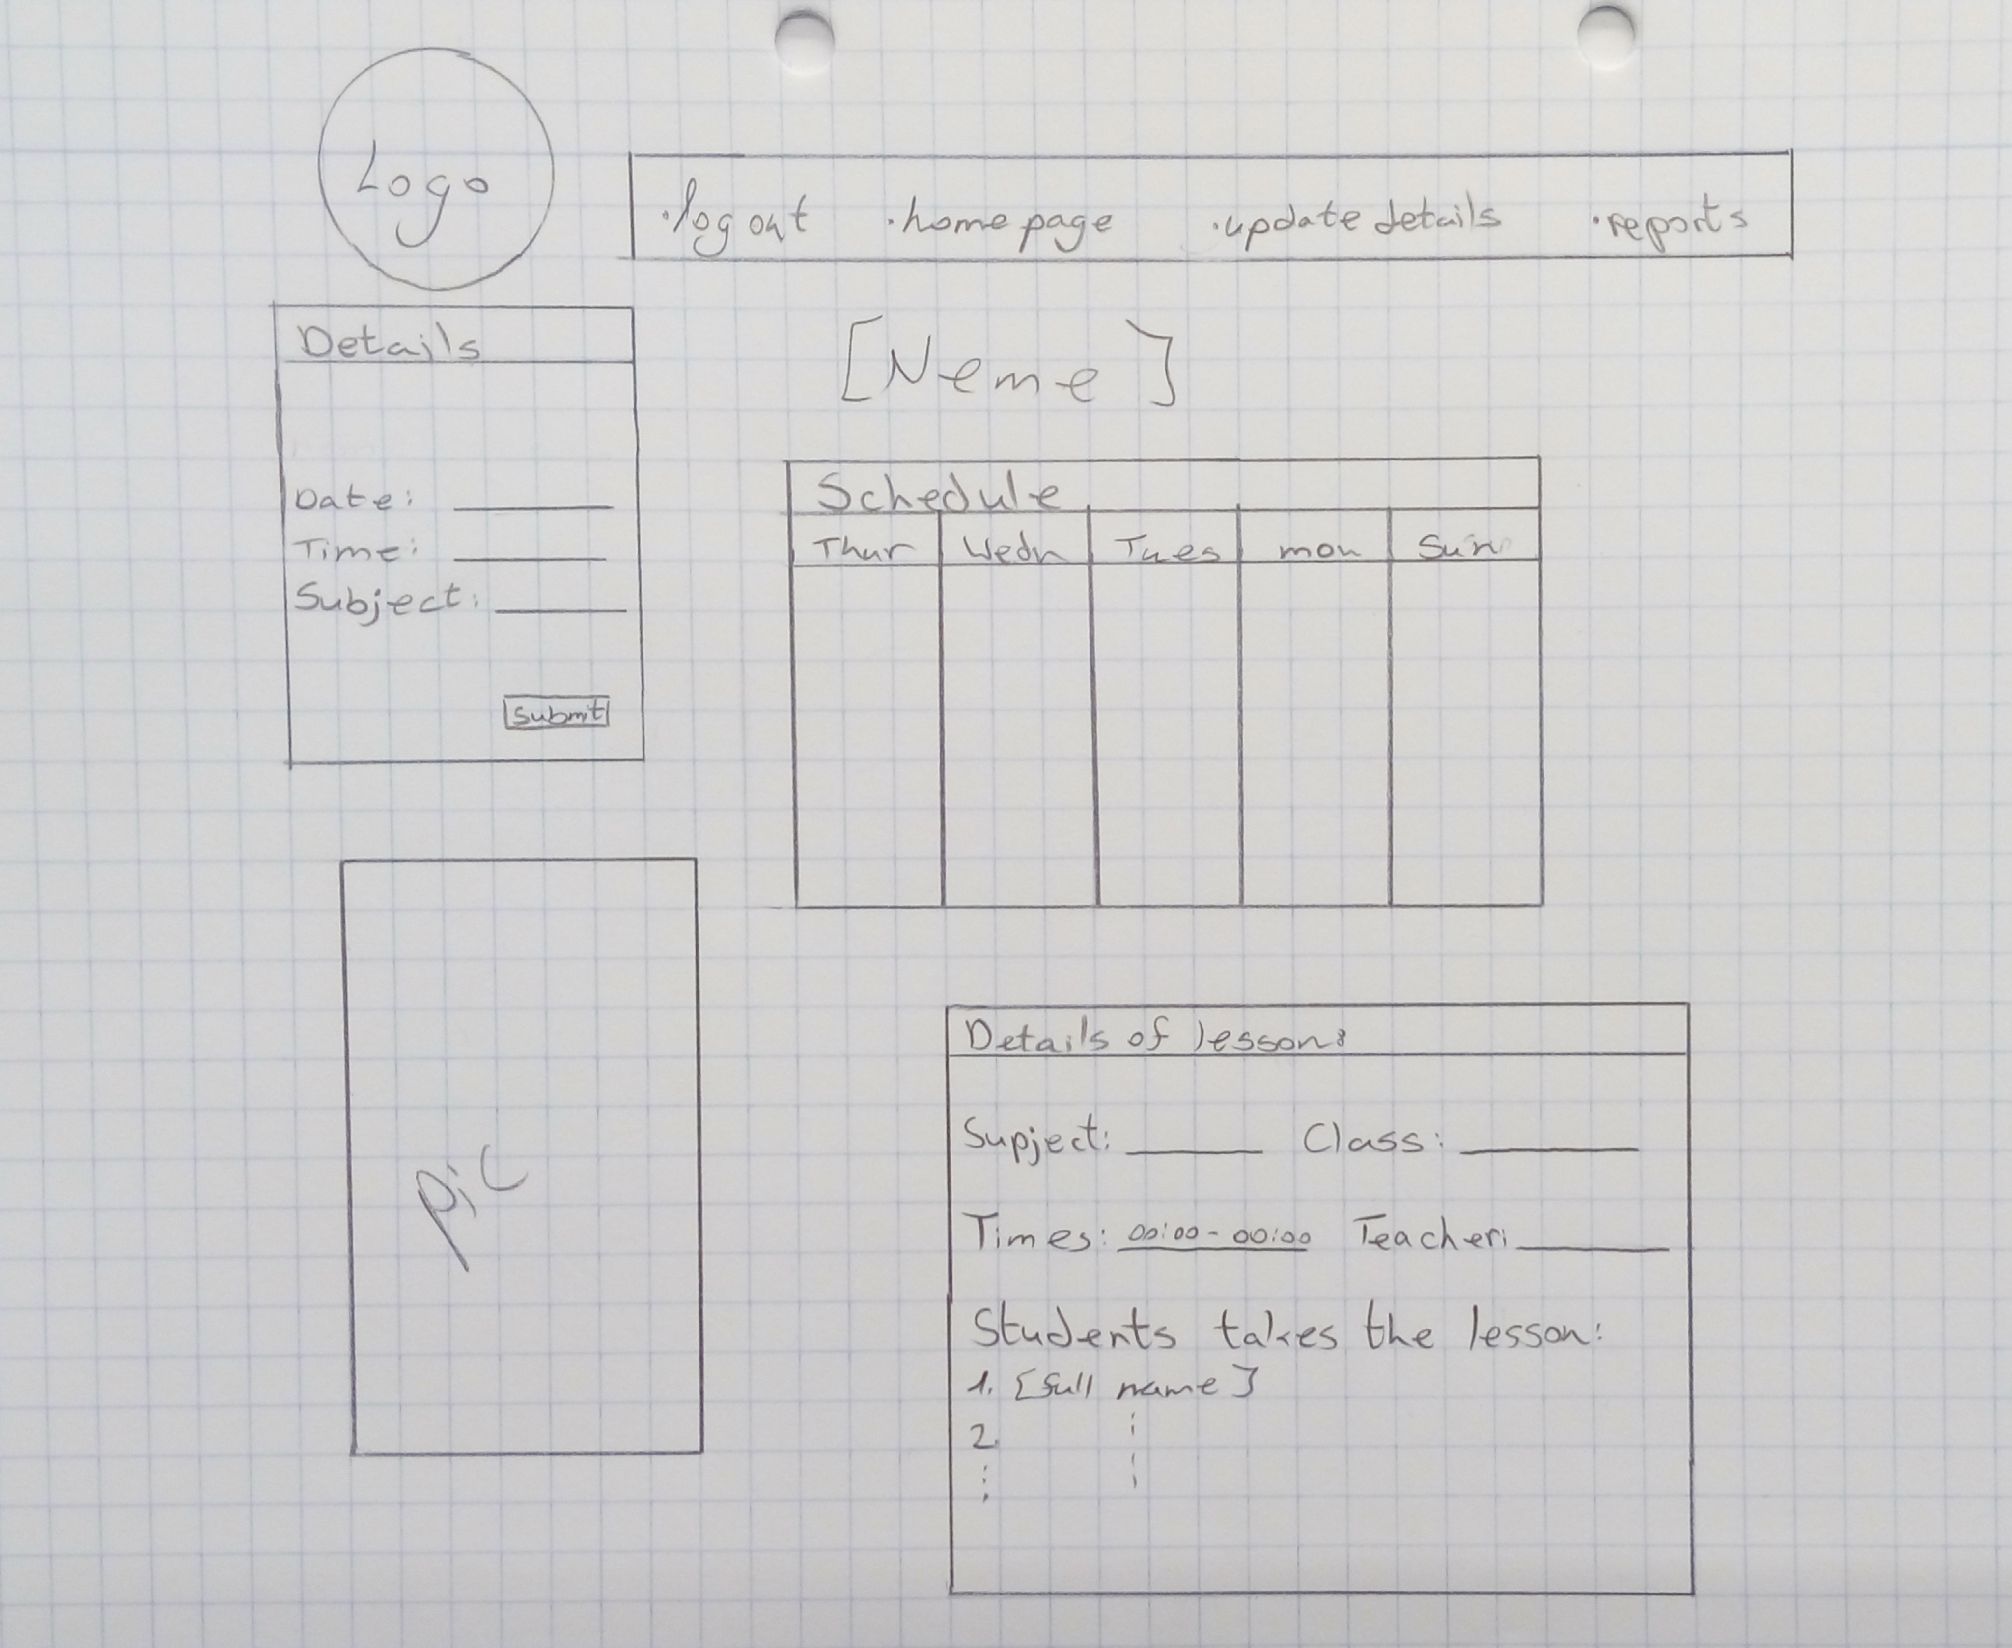 Logo
·log out ·home page ·update details ·reports
Details
Date:
Time:
Subject:
Submit
[Neme]
Schedule
Thur Wedn Tues mon Sun
pic
Details of lesson:
Supject: Class:
Times: 00:00 - 00:00 Teacher:
Students takes the lesson:
1. [full name]
2.